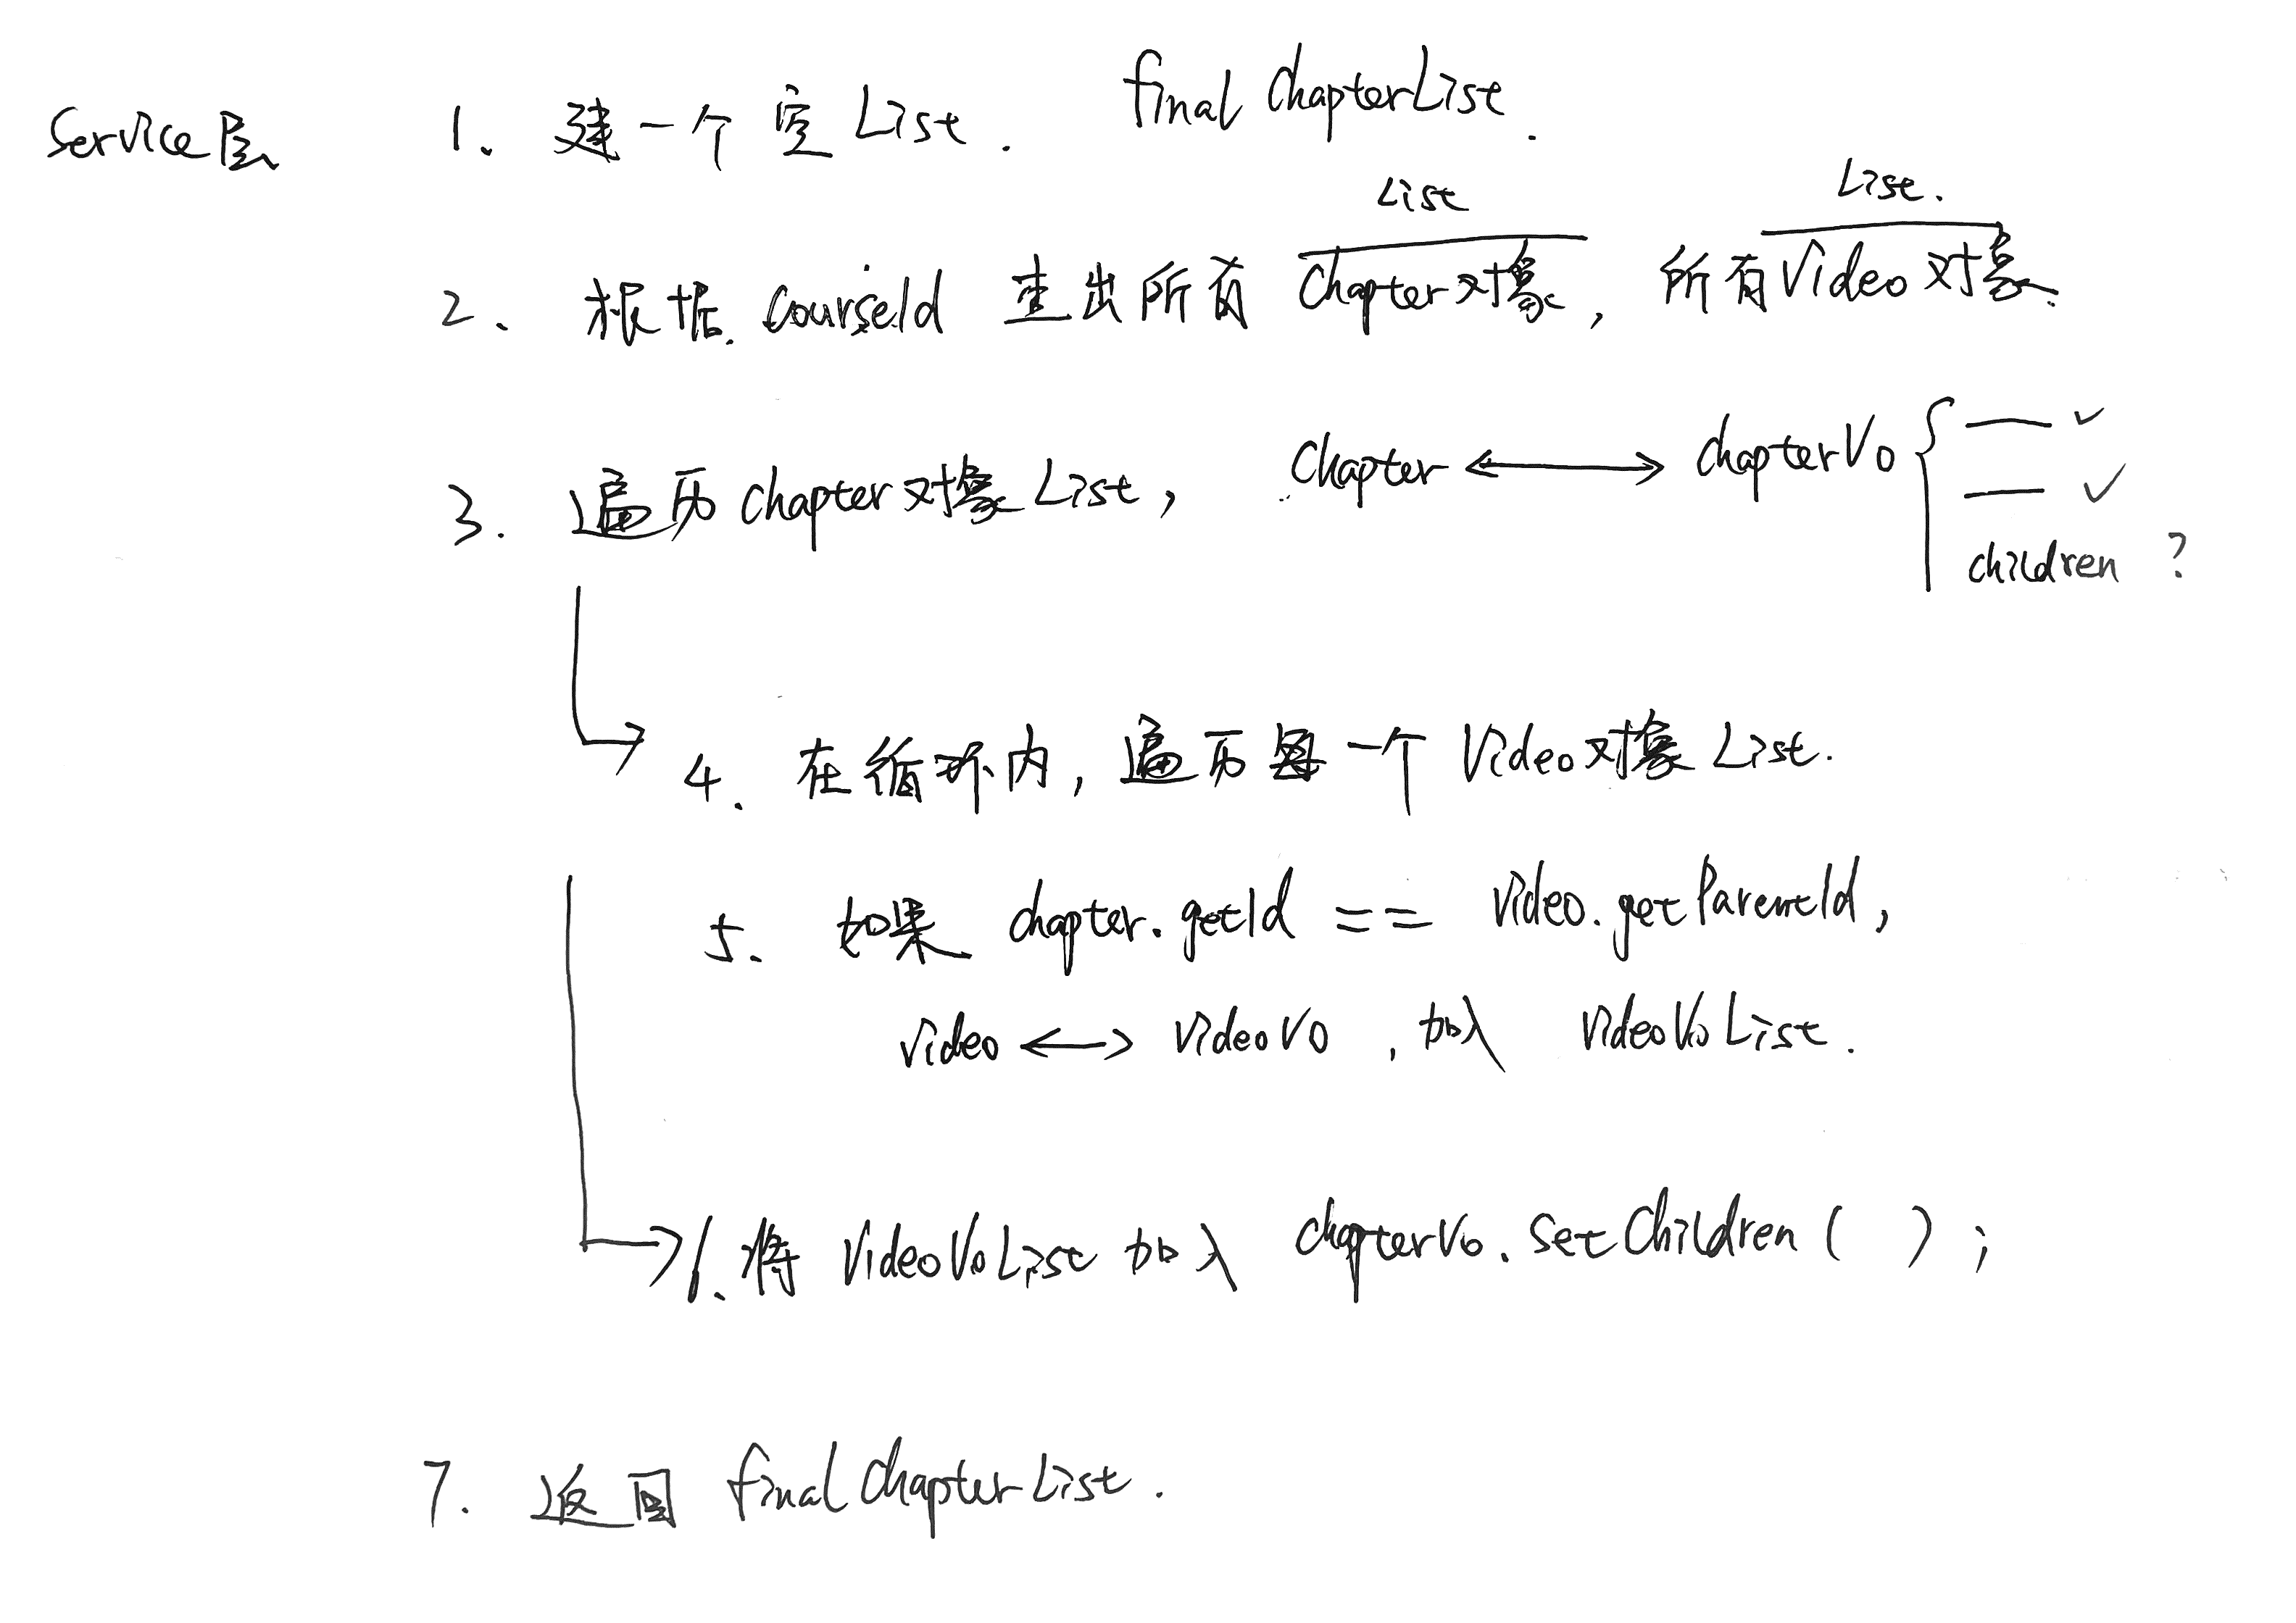 Service层
1、建一个空List. final ChapterList.
List List.
2、根据.courseId 查出所有 Chapter对象, 所有Video对象.
3. 遍历chapter对象List, Chapter ⟷ chapterVo { ✓
✓
children ?
4. 在循环内, 遍历每一个 Video对象 List.
5. 如果 chapter.getId == Video.getParentId,
video ⟷ videoVo , 加入 videoVoList.
将 VideoVoList 加入 chapterVo.setChildren( );
7. 返回 final ChapterList.